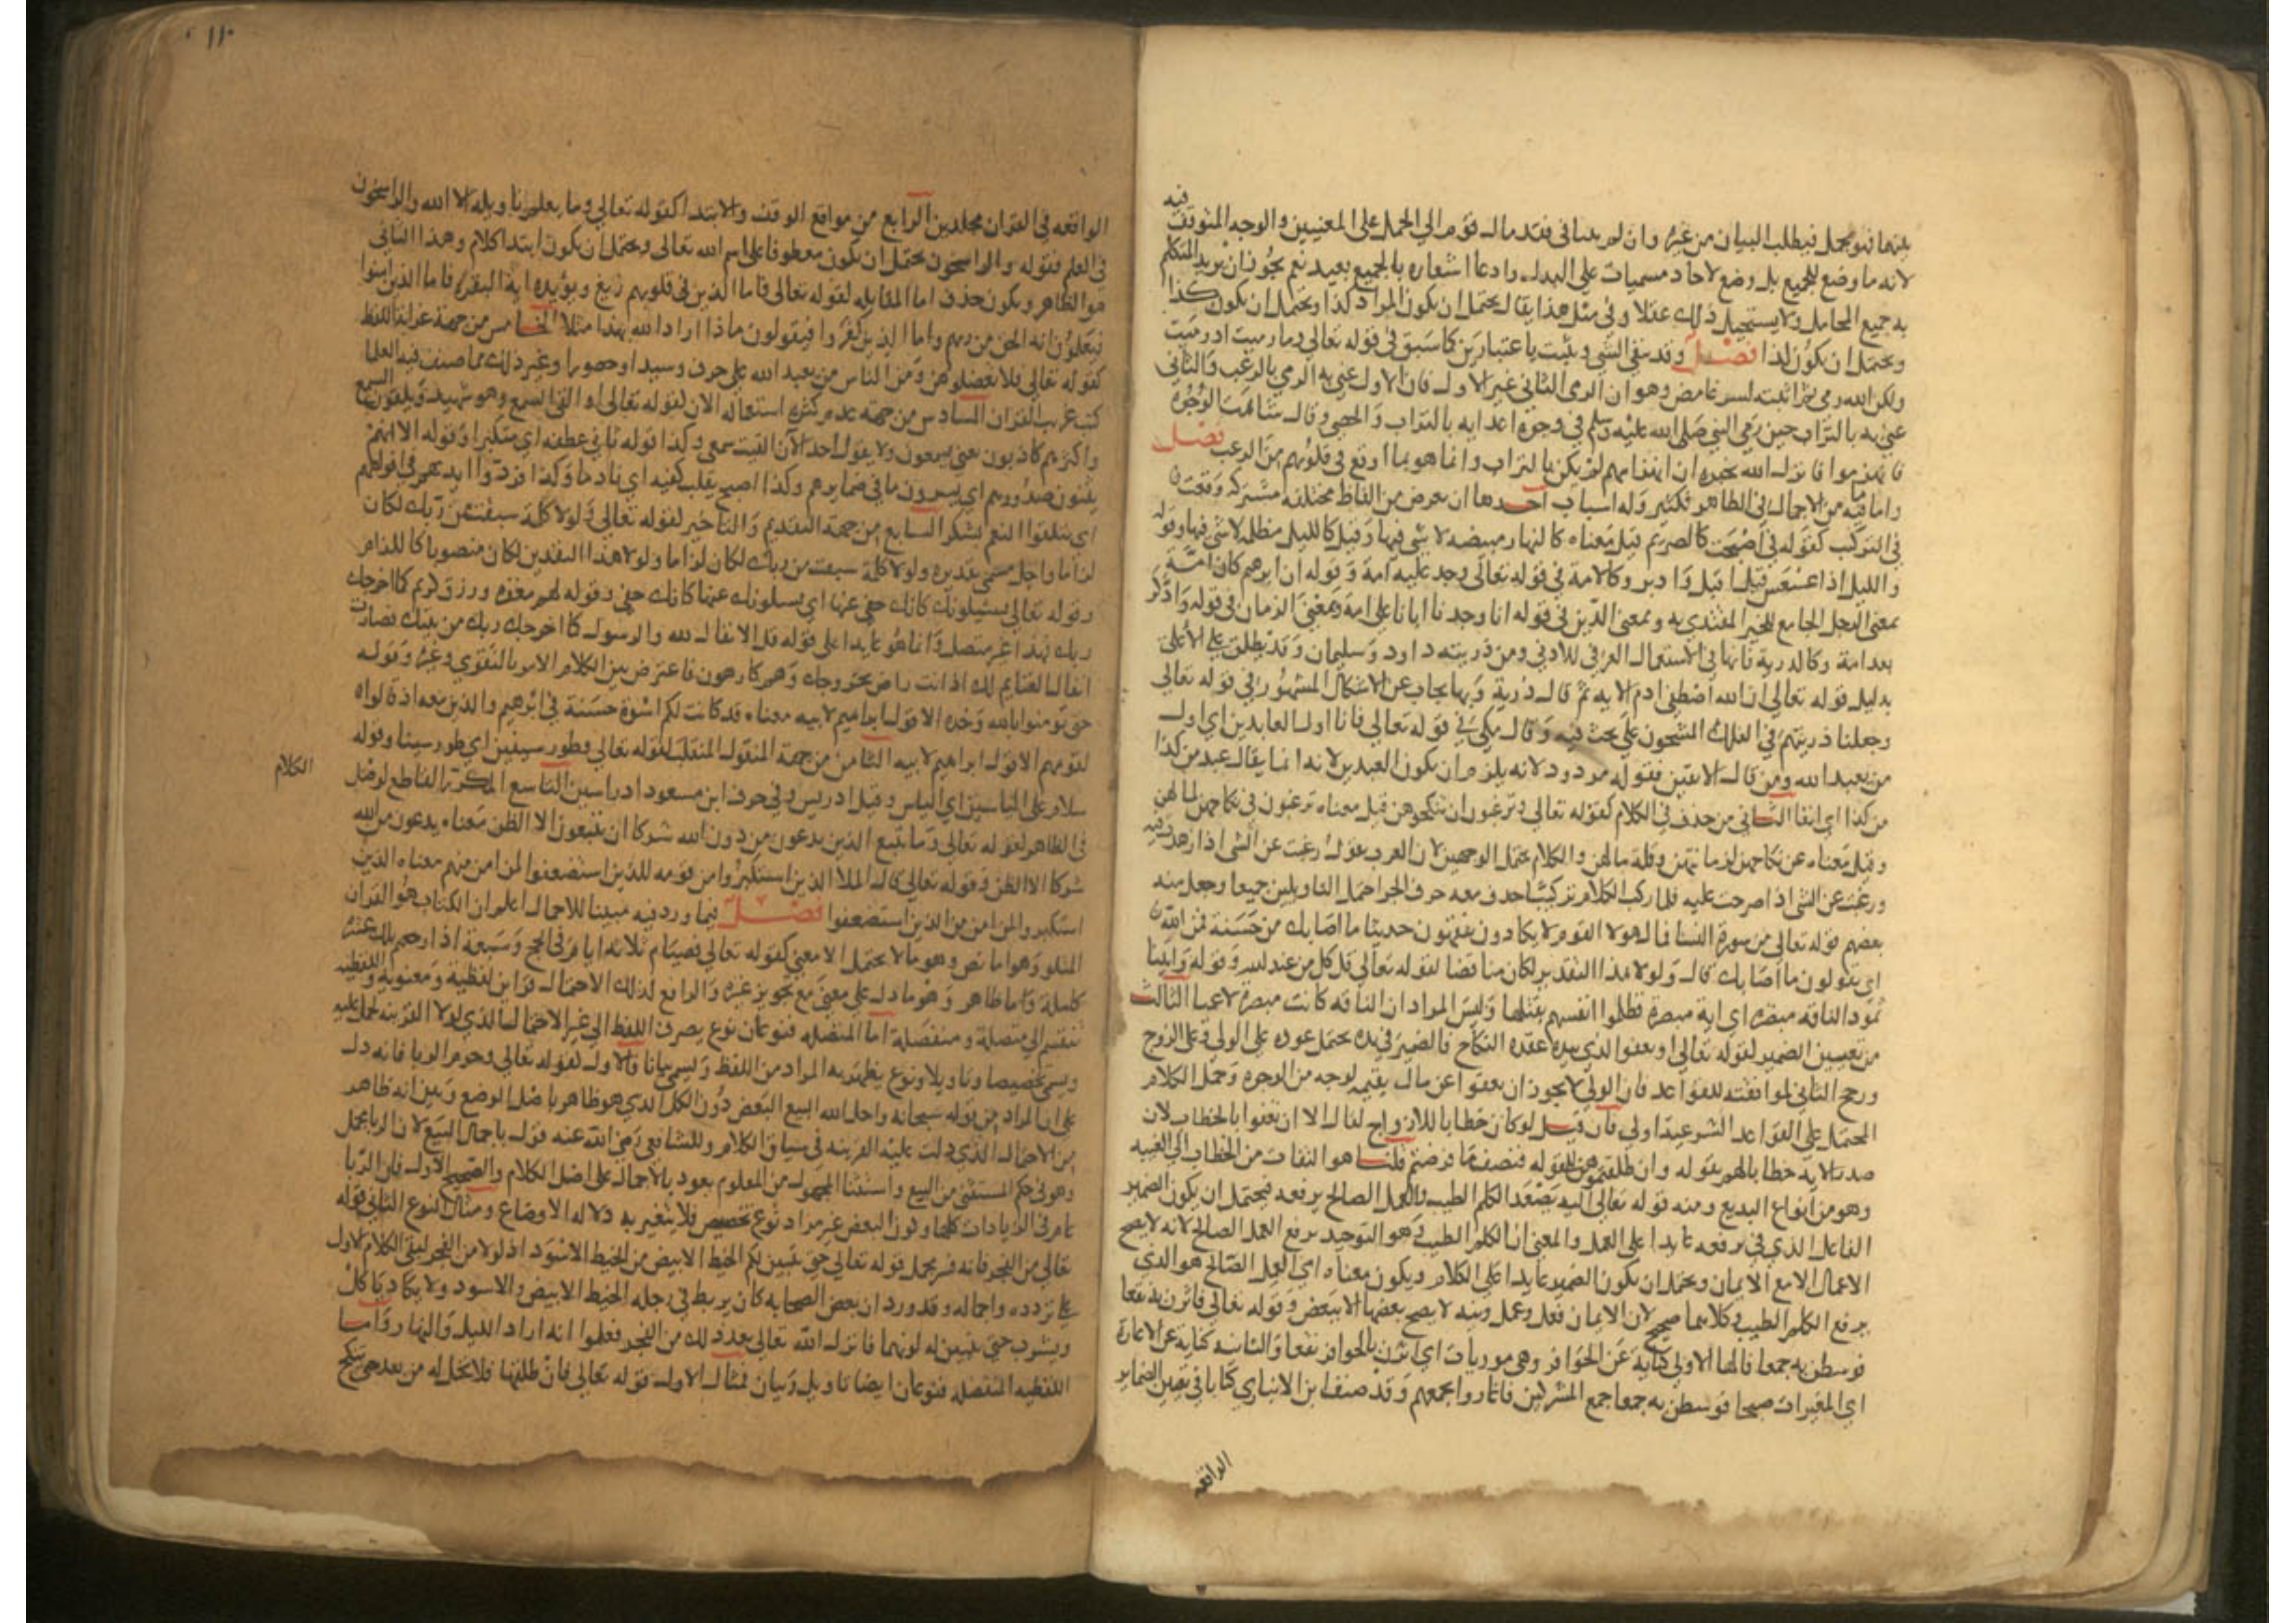 فيه
بينهما فهو مجمل فيطلب البيان من غيره وان لم يتنافى فقد مال قوم الي الحمل على المعنيين والوجه التوقف
لانه ما وضع للجميع بل وضع لاحاد مسميات على البدل وادعا اشعاره بالجميع بعيد نعم يجوز ان يريد المتكلم
به جميع المحامل ولا يستحيل ذلك عقلا وفي مثل هذا يقال يحتمل ان يكون المراد كذا ويحتمل ان يكون كذا
ويحتمل ان يكون لذا فصل وقد ينفى الشي ويثبت باعتبارين كما سبق في قوله تعالى وما رميت اذ رميت
ولكن الله رمى ثم اثبته لسر غامض وهو ان الرمى الثاني غير الاول فان الاول عني به الرمي بالرعب والثاني
عني به بالتراب حين رمى النبي صلى الله عليه وسلم في وجوه اعدايه بالتراب والحصى وقال شاهت الوجوه
فانهزموا فانزل الله يخبره ان انهزامهم لم يكن بالتراب وانما هو بما اوقع في قلوبهم من الرعب فصل
واما ما فيه من الاجمال في الظاهر فكثير وله اسباب احدها ان يعرض من الفاظ مختلفة مشتركه وقعت
في التركيب كقوله فاصبحت كالصريم قيل معناه كالنهار مبيضه لا شي فيها وقيل كالليل مظلمة لا شي فيها وقوله
والليل اذا عسعس قيل اقبل وادبر وكالامة في قوله تعالى وجد عليه امة وقوله ان ابرهيم كان امة
بمعنى الرجل الجامع للخير المقتدى به وبمعنى الدين في قوله انا وجدنا اباناعلى امة وبمعنى الزمان في قوله وادكر
بعد امة وكالذرية فانها في الاستعمال العرفي للادني ومن ذريته داود وسليمان وقد يطلق على الاعلى
بدليل قوله تعالى ان الله اصطفى ادم الايه ثم قال ذرية وبها يجاب عن الاشكال المشهور في قوله تعالى
وجعلنا ذريتهم في الفلك المشحون على بحث فيه وقال مكي في قوله تعالى فانا اول العابدين اي اول
من يعبد الله ومن قال الانفين فقوله مردود لانه يلزم ان يكون العبدين لانه انما يقال عبد من كذا
من كذا اي انفا الثاني من حذف في الكلام كقوله تعالى وترغبون ان تنكحوهن قيل معناه ترغبون في نكاحهن لمالهن
وقيل معناه عن نكاحهن لزمانتهن وقلة مالهن والكلام يحتمل الوجهين لان العرب تقول رغبت عن الشي اذا زهدت فيه
ورغبت عن الشي اذا حرصت عليه فلما ركب الكلام تركيبا حذف معه حرف الجر احتمل التاويلين جميعا وجعل منه
بعضهم قوله تعالى من سورة النسا فمال هولا القوم لا يكادون يفقهون حديثا ما اصابك من حسنة فمن الله
اي يقولون ما اصابك قال ولولا هذا التقدير لكان مناقضا لقوله تعالى قل كل من عند الله وقوله واتينا
ثمود الناقه مبصرة اي اية مبصرة فظلموا انفسهم بقتلها وليس المراد ان الناقه كانت مبصرة لا عميا الثالث
من تعيين الضمير لقوله تعالى او يعفوا الذي بيده عقدة النكاح فالضمير في يده يحتمل عوده على الولي وعلى الزوج
ورجح الثاني لموافقته للقواعد فان الولي لا يجوز ان يعفوا عن مال يتيمه لوجه من الوجوه وحمل الكلام
المحتمل على القواعد الشرعية اولى فان قيل لو كان خطابا للازواج لقال الا ان تعفوا بالخطاب لان
صدر الايه خطابا لهم بقوله وان طلقتموهن لقوله فنصف ما فرضتم قلنا هو التفات من الخطاب الى الغيبه
وهو من انواع البديع ومنه قوله تعالى اليه يصعد الكلم الطيب والعمل الصالح يرفعه فيحتمل ان يكون الضمير
الفاعل الذي في يرفعه عايدا على العمل والمعنى ان الكلم الطيب وهو التوحيد يرفع العمل الصالح لانه لا يصح
الاعمال الا مع الايمان ويحتمل ان يكون الضمير عايدا على الكلام ويكون معناه اي العمل الصالح هو الذي
يرفع الكلم الطيب وكلاهما صحيح لان الايمان فعل وعمل ونية لا يصح بعضها الا ببعض وقوله تعالى فاثرن به نقعا
فوسطن به جمعا فالها الاولى كناية عن الحوافر وهي موريات اي اثرن بالحوافر نقعا والثانيه كناية عن الاغارة
اي المغيرات صبحا فوسطن به جمعا جمع المشركين فاغاروا بجمعهم وقد صنف ابن الانباري كتابا في تعيين الضماير
الواقعه
١١٠
الواقعه في القران مجلدين الرابع من مواقع الوقف والابتدا كقوله تعالى وما يعلم تاويله الا الله والراسخون
في العلم فقوله والراسخون يحتمل ان يكون معطوفا على اسم الله تعالى ويحتمل ان يكون ابتدا كلام وهذا الثاني
هو الظاهر ويكون حذف اما المقابله لقوله تعالى فاما الذين في قلوبهم زيغ ويؤيده اية البقرة فاما الذين امنوا
فيعلمون انه الحق من ربهم واما الذين كفروا فيقولون ماذا اراد الله بهذا مثلا الخامس من جهة غرابة اللفظ
كقوله تعالى فلا تعضلوهن ومن الناس من يعبد الله على حرف وسيدا وحصورا وغير ذلك مما صنف فيه العلما
كتب غريب القران السادس من جهة عدم كثرة استعماله الان لقوله تعالى او القى السمع وهو شهيد ويلقون السمع
واكثرهم كاذبون بمعنى يسمعون ولا يقول احد الآن القيت سمعي وكذا قوله ثاني عطفه اي متكبرا وقوله الا انهم
يثنون صدورهم اي يسرون ما في ضمايرهم وكذا اصبح يقلب كفيه اي نادما وكذا فردوا ايديهم في افواههم
اي يتلقوا النعم بشكر السابع من جهة التقديم والتاخير لقوله تعالى ولولا كلمة سبقت من ربك لكان
لزاما واجل مسمى تقديره ولولا كلمة سبقت من ربك لكان لزاما ولولا هذا التقدير لكان منصوبا كاللزام
وقوله تعالى يسئلونك كانك حفي عنها اي يسلونك عنها كانك حفي وقوله لهم مغفرة ورزق كريم كما اخرجك
ربك فهذا غير متصل وانما هو عايد على قوله قل الانفال لله والرسول كما اخرجك ربك من بيتك فصارت
انفال الغنايم لك اذ انت راض بخروجك وهم كارهون فاعترض بين الكلام الامر بالتقوي وغيره وقوله
حتى تومنوا بالله وحده الا قول ابراهيم لابيه معناه قد كانت لكم اسوة حسنة في ابرهيم والذين معه اذ قالوا
لقومهم الا قول ابراهيم لابيه الثامن من جهة المنقول المنقلب لقوله تعالى وطور سينين اي طور سينا وقوله
سلام على الياسين اي الياس وقيل ادريس وفي حرف ابن مسعود ادراسين التاسع المكرر القاطع لوصل
الكلام
في الظاهر لقوله تعالى وما يتبع الذين يدعون من دون الله شركا ان يتبعون الا الظن معناه يدعون من الله
شركا الا الظن وقوله تعالى قال الملا الذين استكبروا من قومه للذين استضعفوا لمن امن منهم معناه الذين
استكبروا لمن امن من الذين استضعفوا فصل فيما ورد فيه مبينا للاجمال اعلم ان الكتاب هو القران
المتلو وهو اما نص وهو ما لا يحتمل الا معنى كقوله تعالى فصيام ثلاثه ايام في الحج وسبعة اذا رجعتم تلك عشرة
كاملة واما ظاهر وهو ما دل على معنى مع تجويز غيره والرافع لذلك الاحتمال قراين لفظية ومعنوية واللفظيه
تنقسم الي متصلة ومنفصلة اما المتصله فنوعان نوع يصرف اللفظ الى غير الاحتمال الذي لولا القرينه لحمل عليه
ويسمى تخصيصا وتاويلا ونوع يظهر به المراد من اللفظ ويسمى بيانا فالاول لقوله تعالى وحرم الربا فانه دل
على ان المراد من قوله سبحانه واحل الله البيع البعض دون الكل الذي هو ظاهر باصل الوضع وبين انه ظاهر
من الاحتمال الذي دلت عليه القرينه في سياق الكلام وللشافعي رضى الله عنه قول باجمال البيع لان الربا مجمل
وهو في حكم المستثنى من البيع واستثنا المجهول من المعلوم يعود بالاجمال على اصل الكلام والصحيح الاول فان الربا
عام في الزيادات كلها وكون البعض غير مراد نوع تخصيص فلا يتغير به دلاله الاوضاع ومثال النوع الثاني قوله
تعالى من الفجر فانه فسر مجمل قوله تعالى حتى يتبين لكم الخيط الابيض من الخيط الاسود اذ لولا من الفجر لبقى الكلام الاول
على تردده واجماله وقد ورد ان بعض الصحابه كان يربط في رجله الخيط الابيض والاسود ولا يكاد ياكل
ويشرب حتى يتبين له لونهما فانزل الله تعالى بعد ذلك من الفجر فعلموا انه اراد الليل والنهار واما
اللفظيه المنفصله فنوعان ايضا تاويل وبيان فمثال الاول قوله تعالى فان طلقها فلا تحل له من بعد حتى تنكح